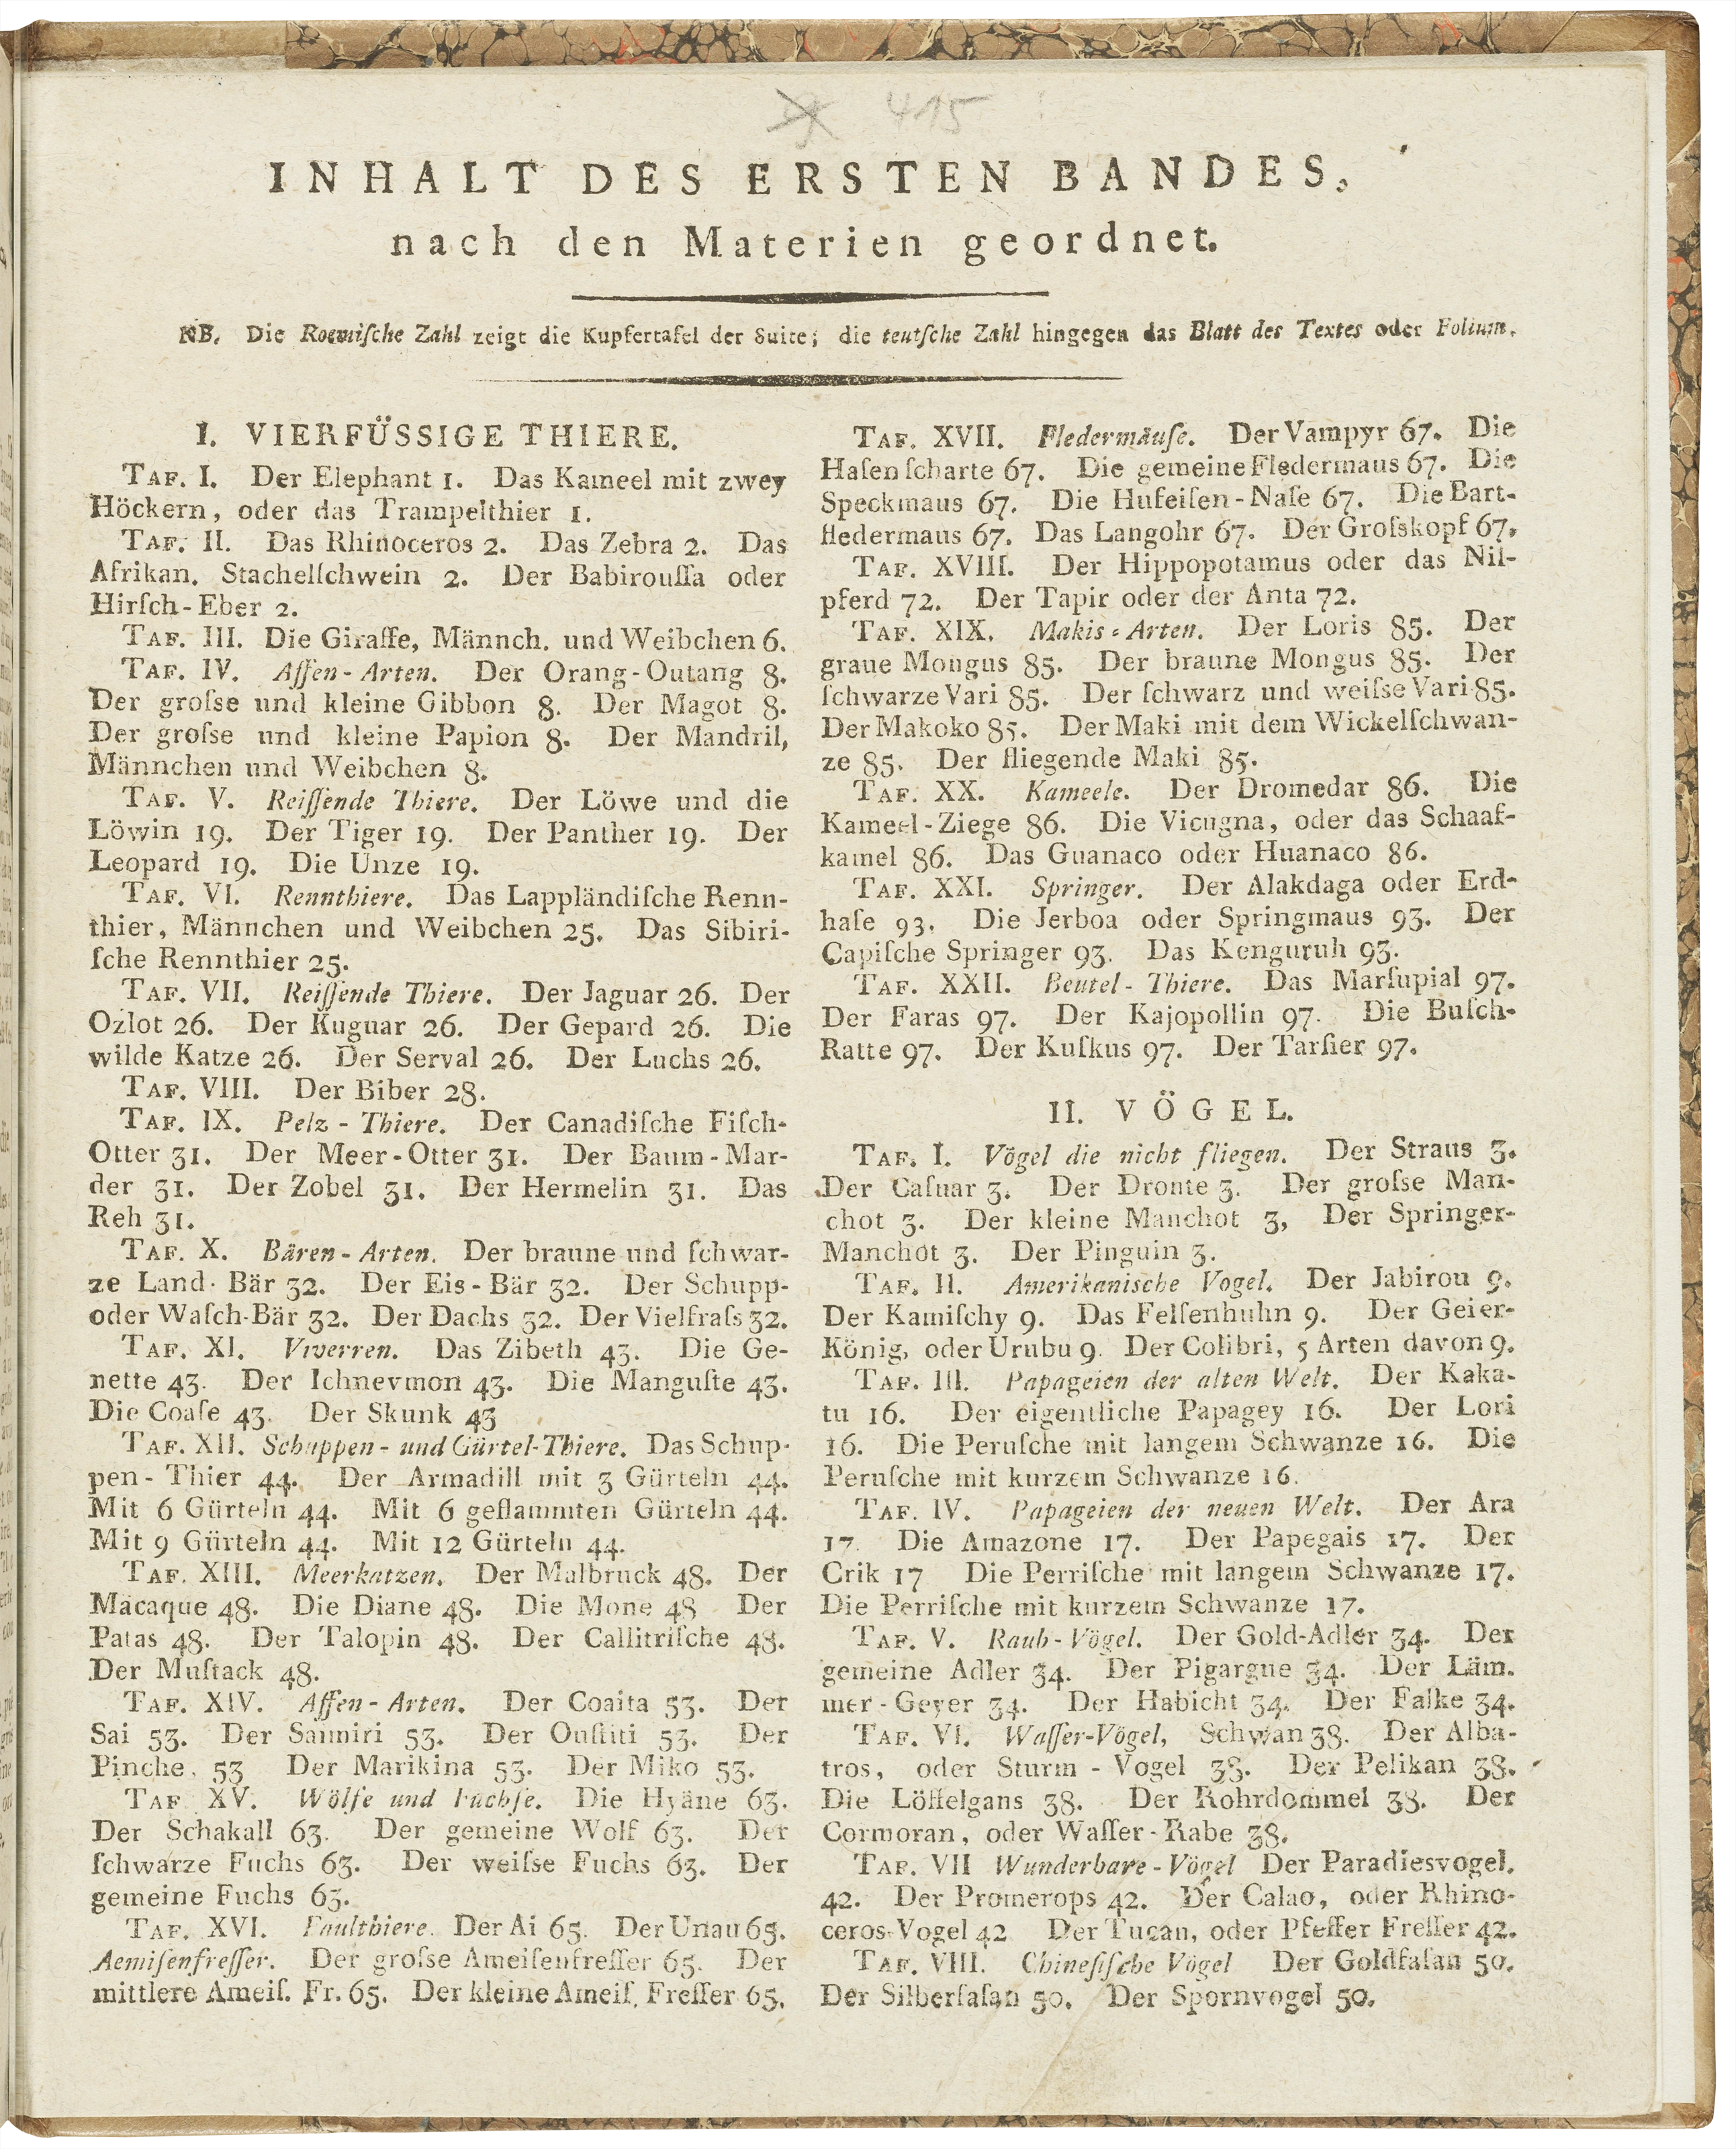 415
INHALT DES ERSTEN BANDES,
nach den Materien geordnet.
NB. Die Roemiſche Zahl zeigt die Kupfertafel der Suite; die teutſche Zahl hingegen das Blatt des Textes oder Folium.
I. VIERFÜSSIGE THIERE.
TAF. I. Der Elephant 1. Das Kameel mit zwey
Höckern, oder das Trampelthier 1.
TAF. II. Das Rhinoceros 2. Das Zebra 2. Das
Afrikan. Stachelſchwein 2. Der Babirouſſa oder
Hirſch-Eber 2.
TAF. III. Die Giraffe, Männch. und Weibchen 6.
TAF. IV. Affen-Arten. Der Orang-Outang 8.
Der groſse und kleine Gibbon 8. Der Magot 8.
Der groſse und kleine Papion 8. Der Mandril,
Männchen und Weibchen 8.
TAF. V. Reiſſende Thiere. Der Löwe und die
Löwin 19. Der Tiger 19. Der Panther 19. Der
Leopard 19. Die Unze 19.
TAF. VI. Rennthiere. Das Lappländiſche Renn-
thier, Männchen und Weibchen 25. Das Sibiri-
ſche Rennthier 25.
TAF. VII. Reiſſende Thiere. Der Jaguar 26. Der
Ozlot 26. Der Kuguar 26. Der Gepard 26. Die
wilde Katze 26. Der Serval 26. Der Luchs 26.
TAF. VIII. Der Biber 28.
TAF. IX. Pelz-Thiere. Der Canadiſche Fiſch-
Otter 31. Der Meer-Otter 31. Der Baum-Mar-
der 31. Der Zobel 31. Der Hermelin 31. Das
Reh 31.
TAF. X. Bären-Arten. Der braune und ſchwar-
ze Land-Bär 32. Der Eis-Bär 32. Der Schupp-
oder Waſch-Bär 32. Der Dachs 32. Der Vielfraſs 32.
TAF. XI. Viverren. Das Zibeth 43. Die Ge-
nette 43. Der Ichnevmon 43. Die Manguſte 43.
Die Coaſe 43. Der Skunk 43
TAF. XII. Schuppen- und Gürtel-Thiere. Das Schup-
pen-Thier 44. Der Armadill mit 3 Gürteln 44.
Mit 6 Gürteln 44. Mit 6 geflammten Gürteln 44.
Mit 9 Gürteln 44. Mit 12 Gürteln 44.
TAF. XIII. Meerkatzen. Der Malbruck 48. Der
Macaque 48. Die Diane 48. Die Mone 48 Der
Patas 48. Der Talopin 48. Der Callitriſche 48.
Der Muſtack 48.
TAF. XIV. Affen-Arten. Der Coaita 53. Der
Sai 53. Der Saimiri 53. Der Ouſtiti 53. Der
Pinche. 53 Der Marikina 53. Der Miko 53.
TAF. XV. Wölfe und Füchſe. Die Hyäne 63.
Der Schakall 63. Der gemeine Wolf 63. Der
ſchwarze Fuchs 63. Der weiſse Fuchs 63. Der
gemeine Fuchs 63.
TAF. XVI. Faulthiere. Der Ai 65. Der Unau 65.
Aemiſenfreſſer. Der groſse Ameiſenfreſſer 65. Der
mittlere Ameiſ. Fr. 65. Der kleine Ameiſ. Freſſer 65.
TAF. XVII. Fledermäuſe. Der Vampyr 67. Die
Haſenſcharte 67. Die gemeine Fledermaus 67. Die
Speckmaus 67. Die Hufeiſen-Naſe 67. Die Bart-
fledermaus 67. Das Langohr 67. Der Groſskopf 67.
TAF. XVIII. Der Hippopotamus oder das Nil-
pferd 72. Der Tapir oder der Anta 72.
TAF. XIX. Makis-Arten. Der Loris 85. Der
graue Mongus 85. Der braune Mongus 85. Der
ſchwarze Vari 85. Der ſchwarz und weiſse Vari 85.
Der Makoko 85. Der Maki mit dem Wickelſchwan-
ze 85. Der fliegende Maki 85.
TAF. XX. Kameele. Der Dromedar 86. Die
Kameel-Ziege 86. Die Vicugna, oder das Schaaf-
kamel 86. Das Guanaco oder Huanaco 86.
TAF. XXI. Springer. Der Alakdaga oder Erd-
haſe 93. Die Jerboa oder Springmaus 93. Der
Capiſche Springer 93. Das Kenguruh 93.
TAF. XXII. Beutel-Thiere. Das Marſupial 97.
Der Faras 97. Der Kajopollin 97. Die Buſch-
Ratte 97. Der Kuſkus 97. Der Tarſier 97.
II. VÖGEL.
TAF. I. Vögel die nicht fliegen. Der Straus 3.
Der Caſuar 3. Der Dronte 3. Der groſse Man-
chot 3. Der kleine Manchot 3, Der Springer-
Manchot 3. Der Pinguin 3.
TAF. II. Amerikanische Vogel. Der Jabirou 9.
Der Kamiſchy 9. Das Felſenhuhn 9. Der Geier-
König, oder Urubu 9. Der Colibri, 5 Arten davon 9.
TAF. III. Papageien der alten Welt. Der Kaka-
tu 16. Der eigentliche Papagey 16. Der Lori
16. Die Peruſche mit langem Schwanze 16. Die
Peruſche mit kurzem Schwanze 16.
TAF. IV. Papageien der neuen Welt. Der Ara
17. Die Amazone 17. Der Papegais 17. Der
Crik 17 Die Perriſche mit langem Schwanze 17.
Die Perriſche mit kurzem Schwanze 17.
TAF. V. Raub-Vögel. Der Gold-Adler 34. Der
gemeine Adler 34. Der Pigargue 34. Der Läm-
mer-Geyer 34. Der Habicht 34. Der Falke 34.
TAF. VI. Waſſer-Vögel, Schwan 38. Der Alba-
tros, oder Sturm-Vogel 38. Der Pelikan 38.
Die Löffelgans 38. Der Rohrdommel 38. Der
Cormoran, oder Waſſer-Rabe 38.
TAF. VII Wunderbare-Vögel Der Paradiesvogel.
42. Der Promerops 42. Der Calao, oder Rhino-
ceros-Vogel 42 Der Tucan, oder Pfeffer Freſſer 42.
TAF. VIII. Chineſiſche Vögel Der Goldfaſan 50.
Der Silberfaſan 50. Der Spornvogel 50.